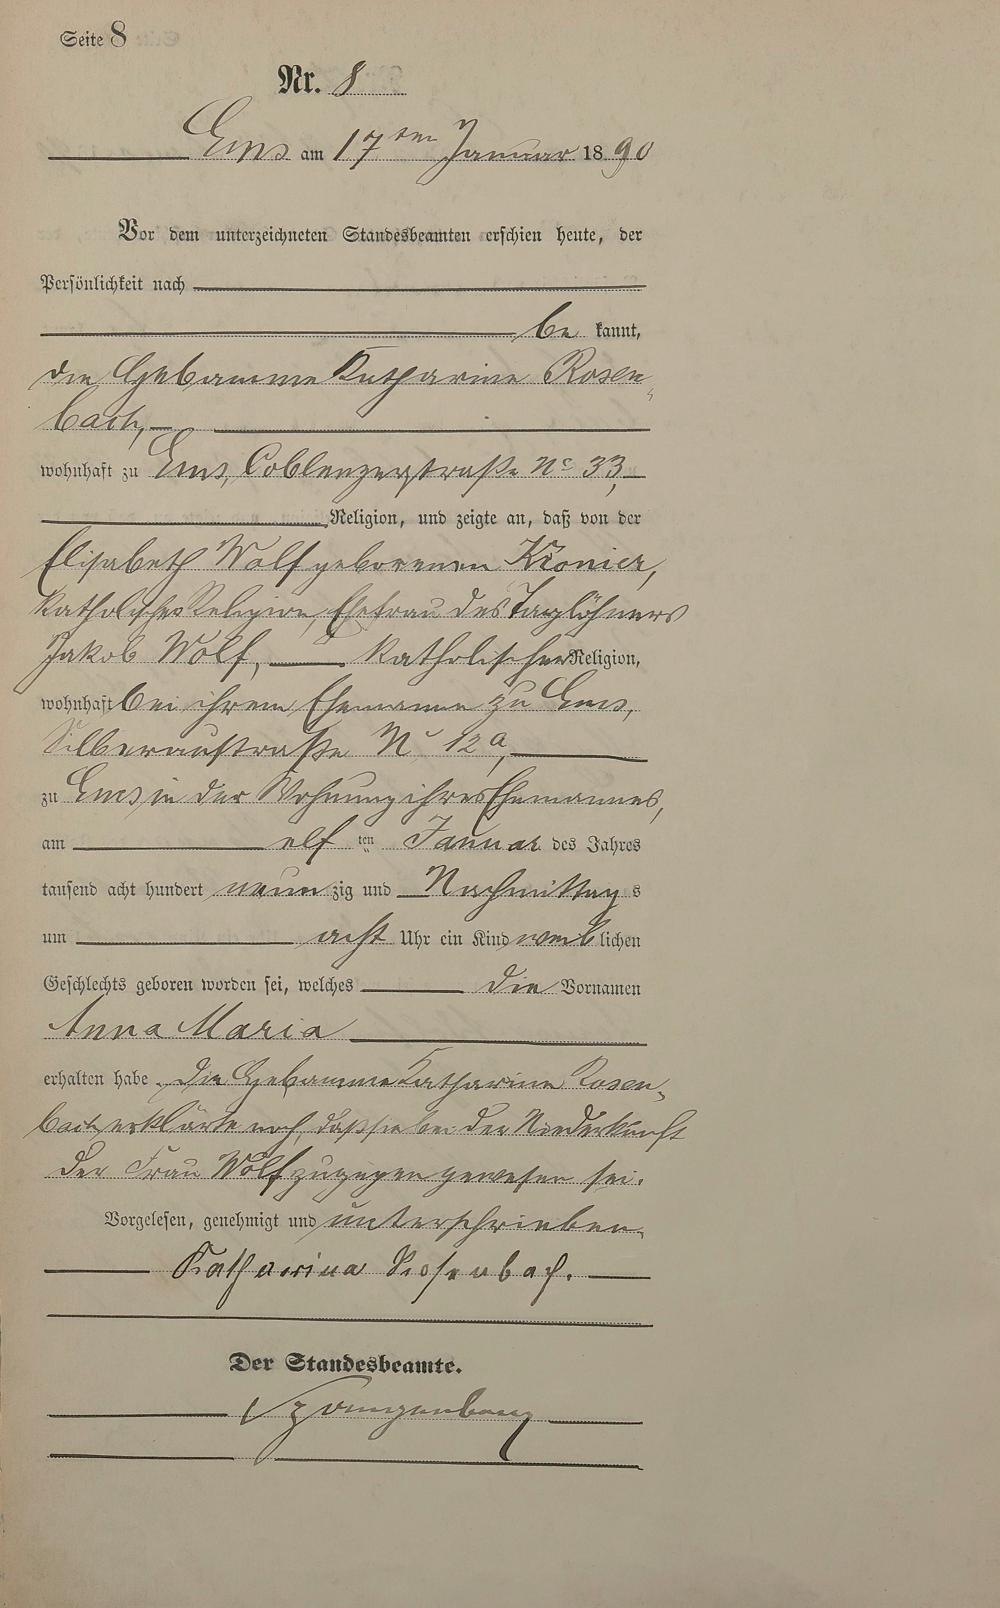 Seite 8
Nr. 8
Ems am 17ten Januar 1890
Vor dem unterzeichneten Standesbeamten erschien heute, der
Persönlichkeit nach
be kannt,
die Hebamme Katharina Rosen-
bach,
wohnhaft zu Ems, Coblenzerstraße No 33,
Religion, und zeigte an, daß von der
Elisabeth Wolf geborenen Kronier,
katholischer Religion, Ehefrau des Taglöhners
Jakob Wolf, katholischer Religion,
wohnhaft bei ihrem Ehemanne zu Ems,
Silberaustraße No 12a,
zu Ems in der Wohnung ihres Ehemannes,
am elf ten Januar des Jahres
tausend acht hundert neun zig und Nachmittag s
um acht Uhr ein Kind weib lichen
Geschlechts geboren worden sei, welches die Vornamen
Anna Maria
erhalten habe. Die Hebamme Katharina Rosen-
bach erklärte noch, daß sie bei der Niederkunft
der Frau Wolf zugegen gewesen sei.
Vorgelesen, genehmigt und unterschrieben
Katharina Rosenbach.
Der Standesbeamte.
Spangenberg